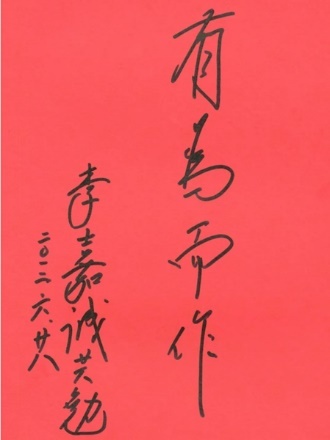 有为而作
李嘉诚共勉
二〇一二.六.廿八